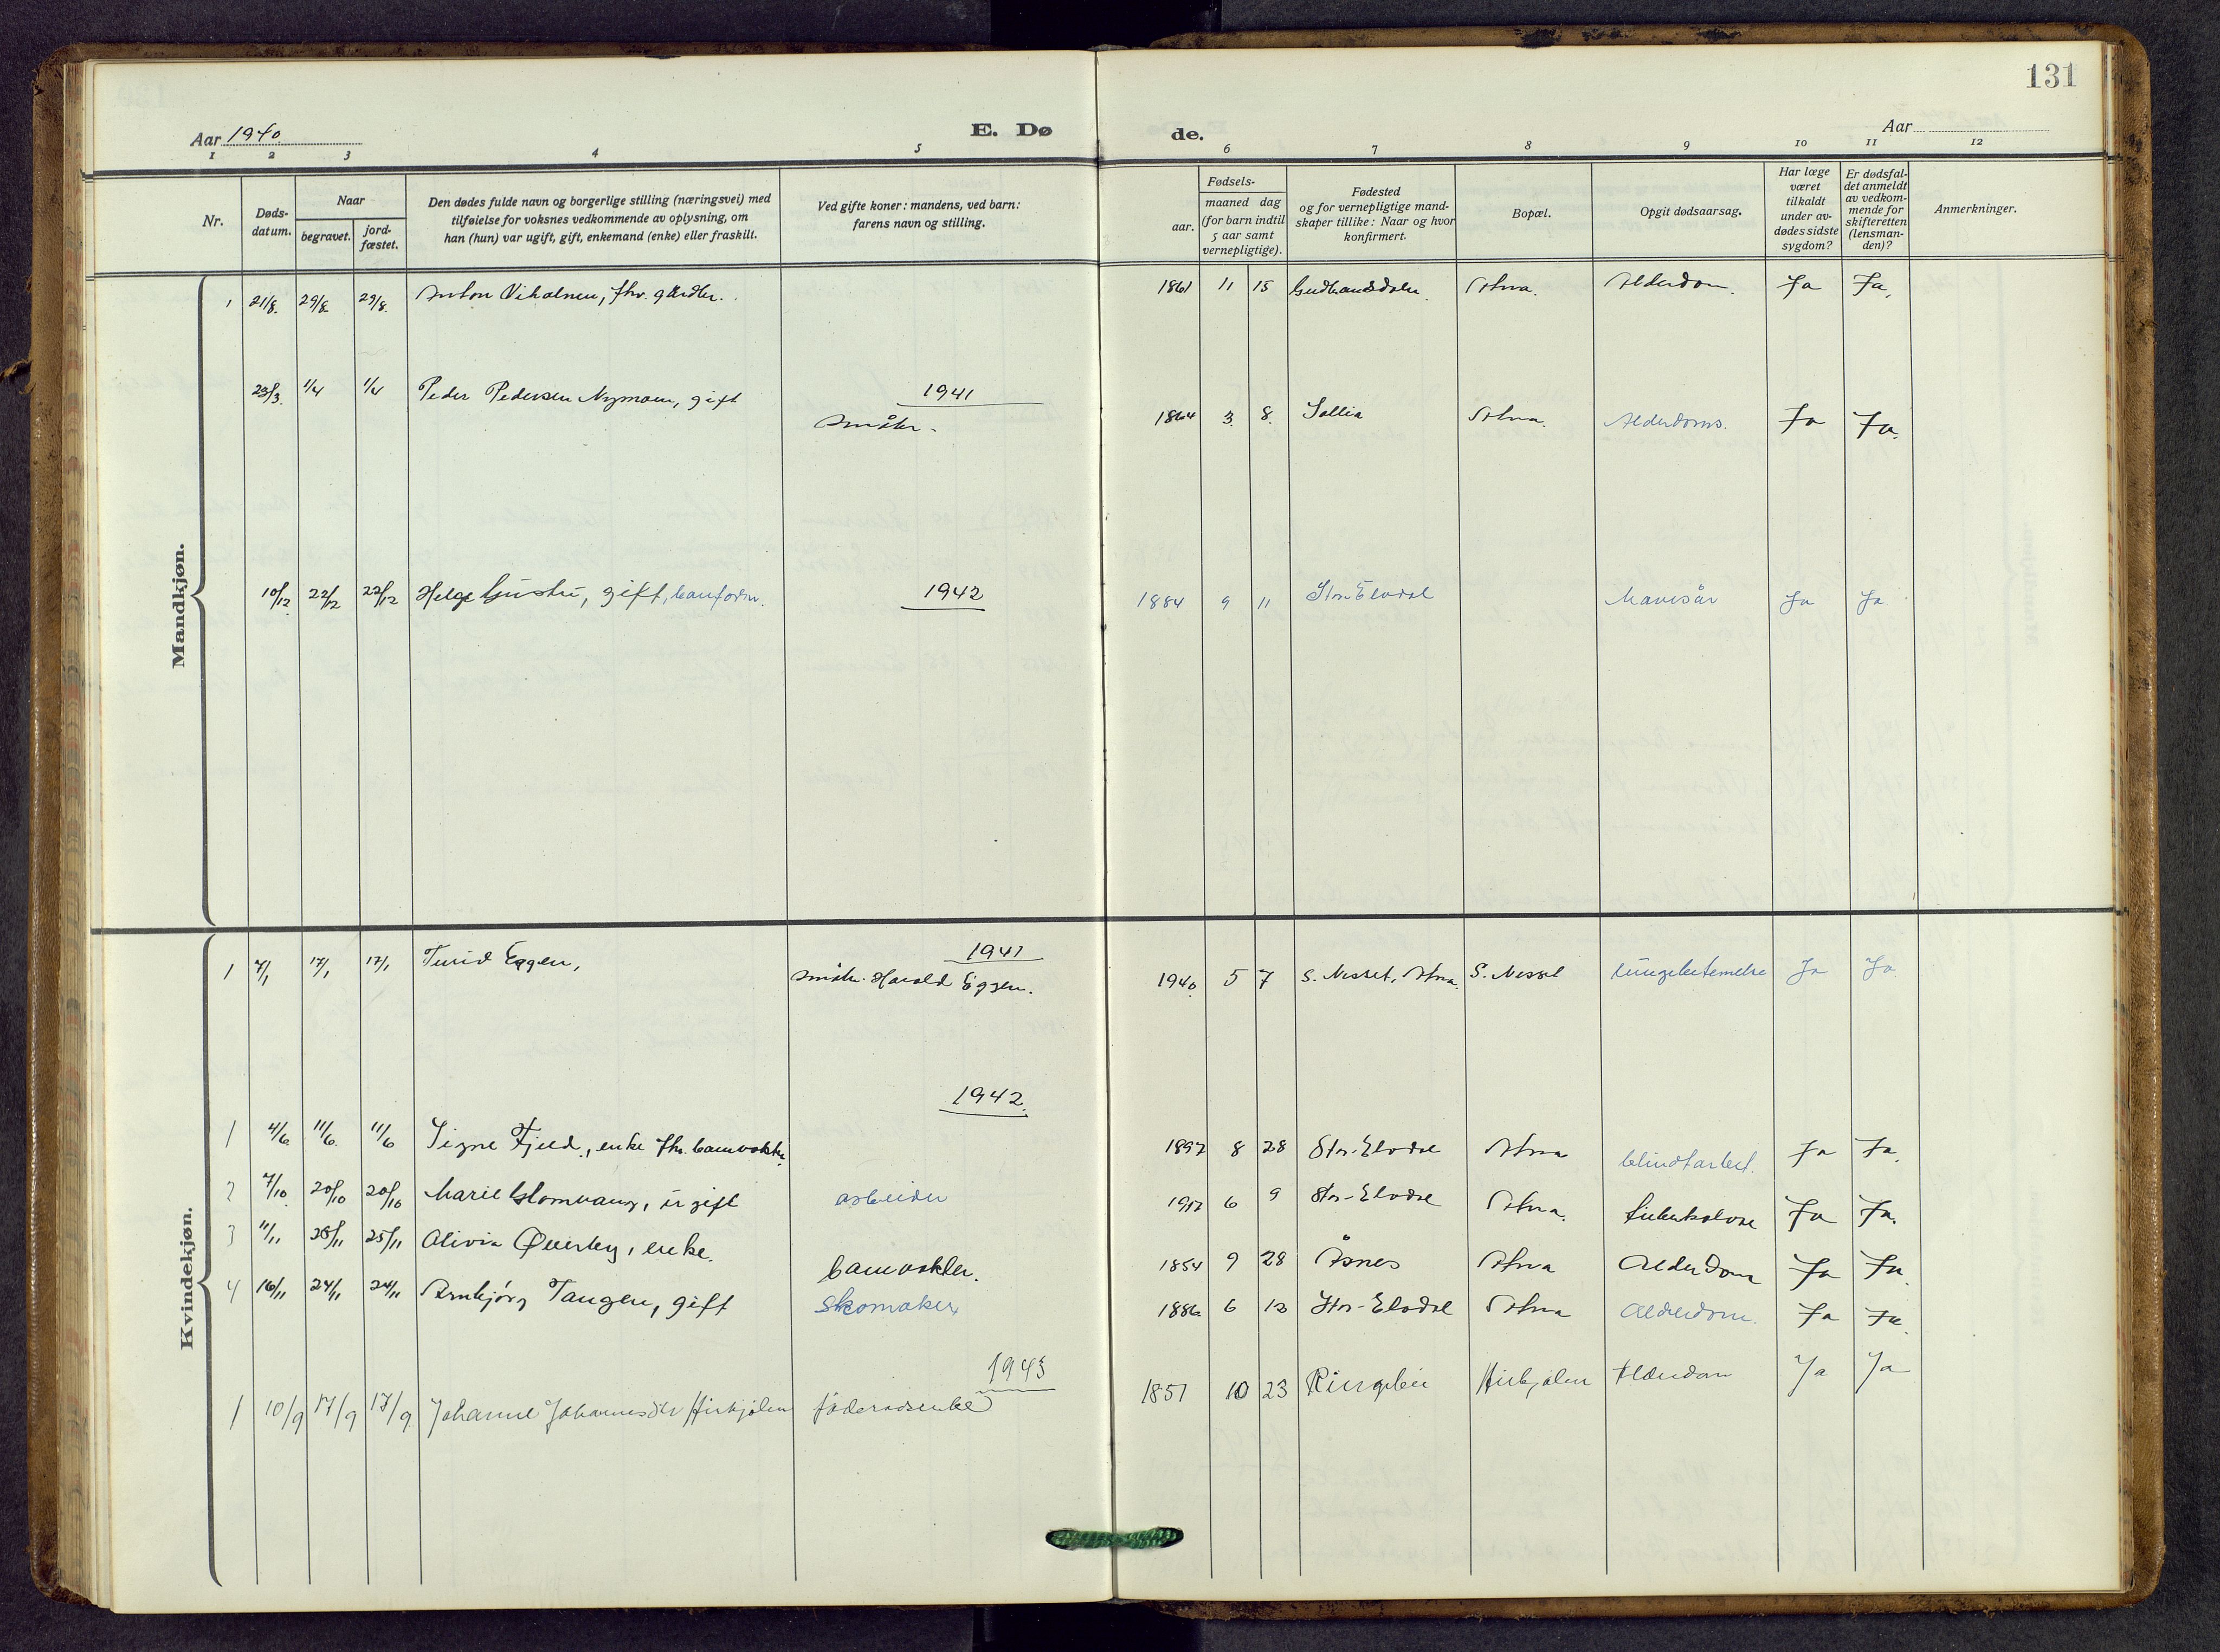 131
Aar 1940.
E. Dø
de.
Aar
1 2 3 4 5 6 7 8 9 10 11 12
Nr.
Døds-
datum.
Naar
begravet.
jord-
fæstet.
Den dødes fulde navn og borgerlige stilling (næringsvei) med
tilføielse for voksnes vedkommende av oplysning, om
han (hun) var ugift, gift, enkemand (enke) eller fraskilt.
Ved gifte koner: mandens, ved barn:
farens navn og stilling.
Fødsels-
aar.
maaned dag
(for barn indtil
5 aar samt
vernepligtige).
Fødested
og for vernepligtige mand-
skaper tillike: Naar og hvor
konfirmert.
Bopæl.
Opgit dødsaarsag.
Har læge
været
tilkaldt
under av-
dødes sidste
sygdom?
Er dødsfal-
det anmeldt
av vedkom-
mende for
skifteretten
(lensman-
den)?
Anmerkninger.
Mandkjøn.
1 21/8. 29/8. 29/8. Anton, fhv. 1861 11 15 Atna. Alderdom. Ja Ja.
1941
23/3. 1/4 1/4 Peder Pedersen Nymoen, gift småbr. 1864 3. 8. Sollia Atna. Alderdoms. Ja Ja.
1942
10/12. 22/12 22/12 Helge, gift, banform. 1884 9 11 Stor-Elvdal Mavesår Ja Ja
Kvindekjøn.
1941
1 7/1 17/1 17/1 Turid Eggen, småbr. Harald Eggen. 1940. 5 7 S. Nesset, Atna. S. Nesset lungebetennelse Ja Ja
1942.
1 4/6. 11/6. 11/6 Signe Fjeld, enke fhv. banevokter. 1897 8 28 Stor-Elvdal Atna blindtarbet. Ja Ja.
2 7/10. 20/10 20/10 Marie Glomvang, ugift arbeider 6 9 Stor-Elvdal Atna. tuberkolose Ja Ja.
3 11/11 25/11 25/11 Olivia Øverby, enke. banevokter. 1854 9 28 Åsnes Atna Alderdom Ja Ja.
4 16/11 24/11 24/11 Arnbjørg Tangen, gift skomaker 1886. 6 Stor-Elvdal Atna Alderdom. Ja Ja.
1943
1 10/9 17/9 17/9. Johanne Johannesdtr Hirkjølen føderadsenke 1851 10 23 Ringebu Hirkjølen Alderdom Ja Ja